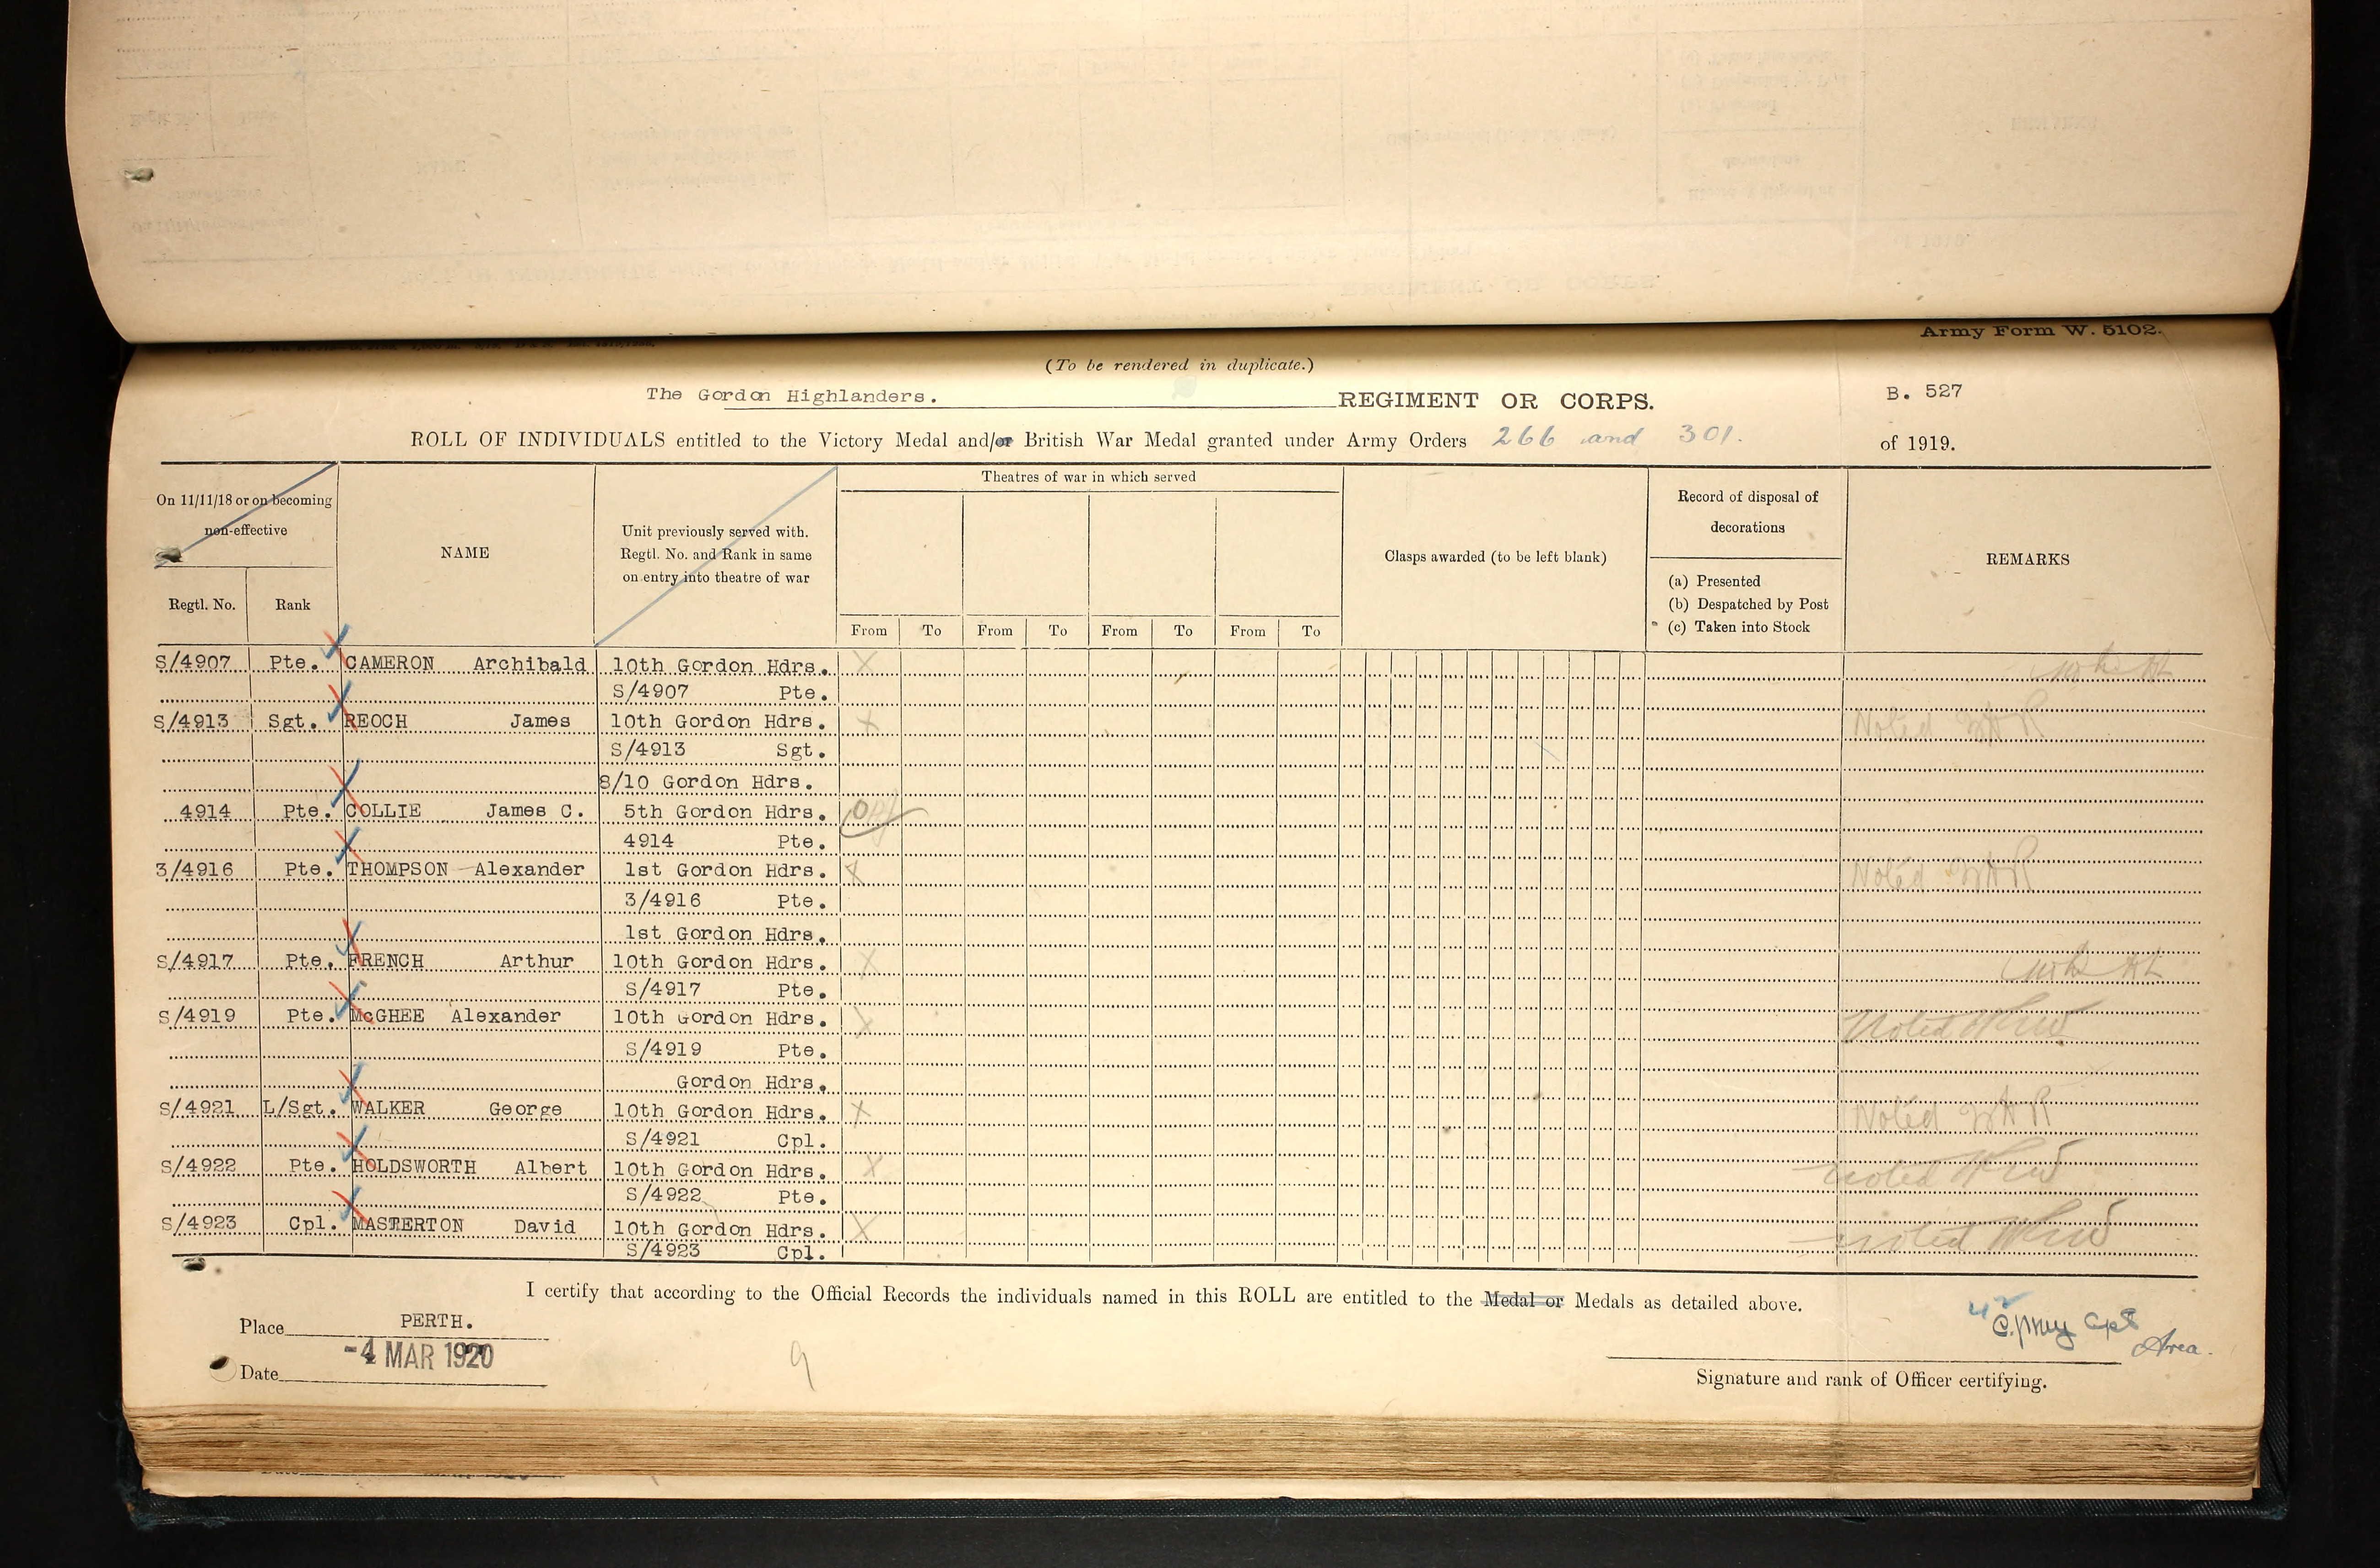 Army Form W. 5102.
(To be rendered in duplicate.)
The Gordon Highlanders. REGIMENT OR CORPS. B. 527
ROLL OF INDIVIDUALS entitled to the Victory Medal and/or British War Medal granted under Army Orders 266 and 301. of 1919.
On 11/11/18 or on becoming non-effective
Regtl. No. Rank
NAME
Unit previously served with. Regtl. No. and Rank in same on entry into theatre of war
Theatres of war in which served
From To From To From To From To
Clasps awarded (to be left blank)
Record of disposal of decorations
(a) Presented
(b) Despatched by Post
(c) Taken into Stock
REMARKS
S/4907 Pte. CAMERON Archibald 10th Gordon Hdrs. X
S/4907 Pte.
S/4913 Sgt. REOCH James 10th Gordon Hdrs. X Noted
S/4913 Sgt.
8/10 Gordon Hdrs.
4914 Pte. COLLIE James C. 5th Gordon Hdrs.
4914 Pte.
3/4916 Pte. THOMPSON Alexander 1st Gordon Hdrs. X Noted
3/4916 Pte.
1st Gordon Hdrs.
S/4917 Pte. FRENCH Arthur 10th Gordon Hdrs. X
S/4917 Pte.
S/4919 Pte. McGHEE Alexander 10th Gordon Hdrs. X Noted
S/4919 Pte.
Gordon Hdrs.
S/4921 L/Sgt. WALKER George 10th Gordon Hdrs. X Noted
S/4921 Cpl.
S/4922 Pte. HOLDSWORTH Albert 10th Gordon Hdrs. X noted
S/4922 Pte.
S/4923 Cpl. MASTERTON David 10th Gordon Hdrs. X noted
S/4923 Cpl.
I certify that according to the Official Records the individuals named in this ROLL are entitled to the Medal or Medals as detailed above.
Place PERTH.
Date -4 MAR 1920
9
Signature and rank of Officer certifying.